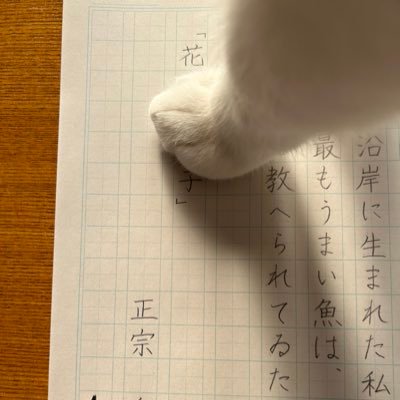 沿岸に生まれた私
最もうまい魚は、
教へられてゐた
「花
子」
正宗